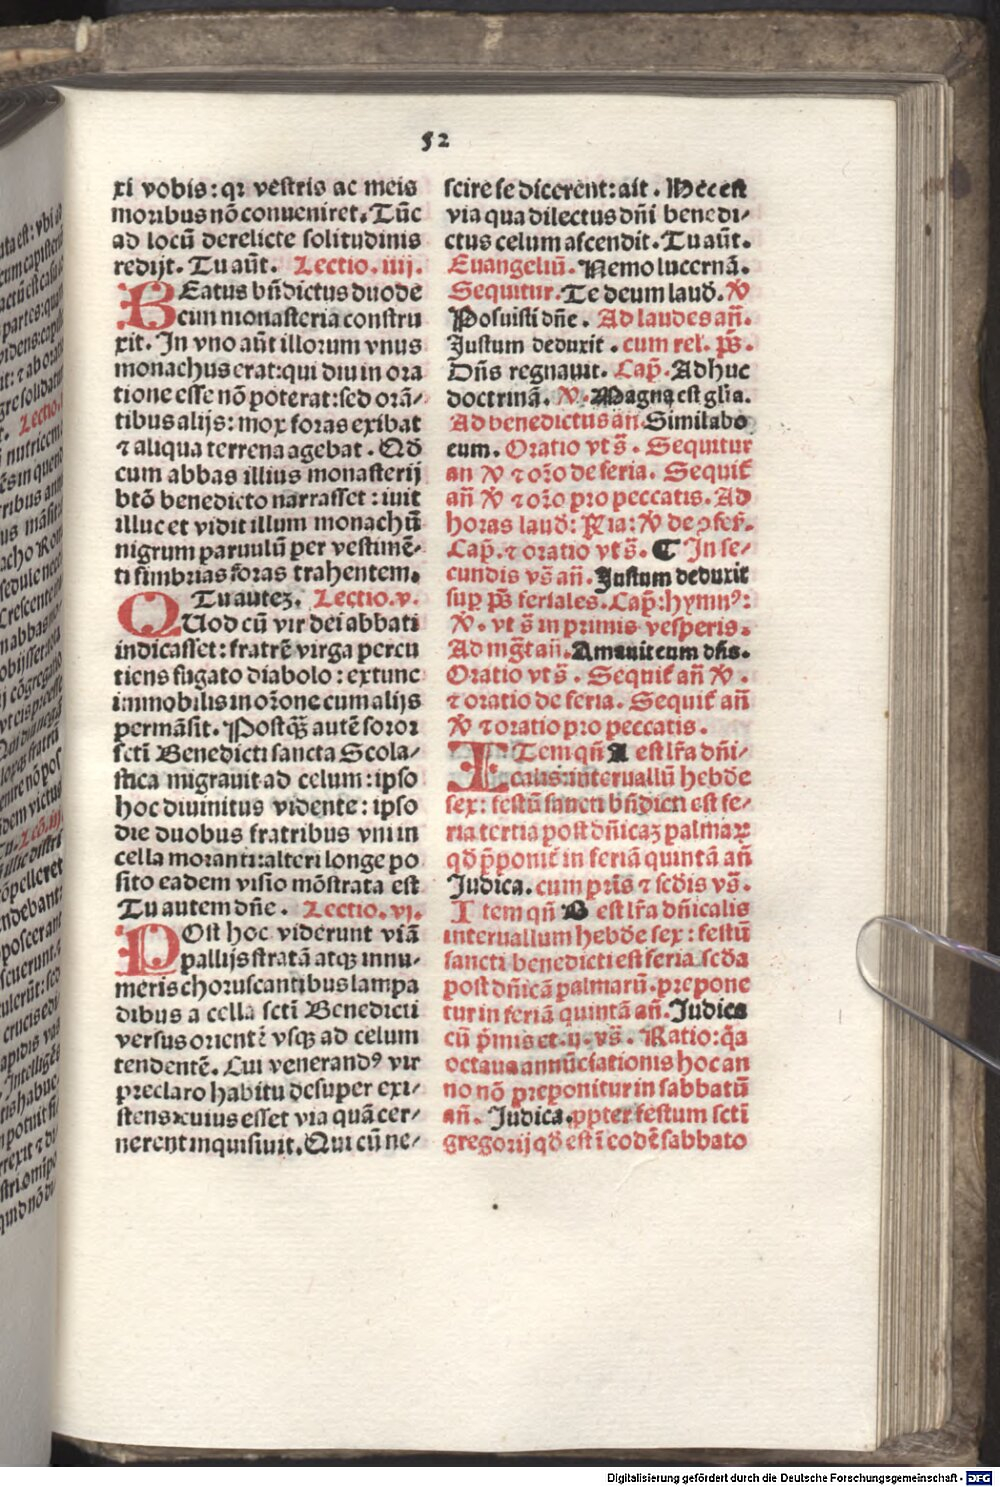 52
xi vobis: qꝛ vestris ac meis
moribus nõ conueniret. Tũc
ad locũ derelicte solitudinis
redijt. Tu aũt. Lectio. iiij.
BEatus bñdictus duode
cim monasteria constru
xit. In vno aũt illorum vnus
monachus erat: qui diu in ora
tione esse nõ poterat: sed orã⸗
tibus alijs: mox foras exibat
⁊ aliqua terrena agebat. Qđ
cum abbas illius monasterij
btõ benedicto narrasset: iuit
illuc et vidit illum monachũ
nigrum paruulũ per vestimẽ⸗
ti fimbrias foras trahentem.
Tu auteꝫ. Lectio. v.
QUod cũ vir dei abbati
indicasset: fratrẽ virga percu
tiens fugato diabolo: extunc
immobilis in orõne cum alijs
permãsit. Postꝙ̃ autẽ soror
scti Benedicti sancta Scola⸗
stica migrauit ad celum: ipso
hoc diuinitus vidente: ipso
die duobus fratribus vni in
cella moranti: alteri longe po
sito eadem visio mõstrata est
Tu autem dñe. Lectio. vj.
POst hoc viderunt viã
pallijs stratã atqꝫ innu⸗
meris choruscantibus lampa
dibus a cella scti Benedicti
versus orientẽ vsqꝫ ad celum
tendentẽ. Cui venerandꝰ vir
preclaro habitu desuper exi⸗
stens: cuius esset via quã cer⸗
nerent inquisiuit. Qui cũ ne⸗
scire se dicerent: ait. Hec est
via qua dilectus dñi benedi⸗
ctus celum ascendit. Tu aũt.
Euangeliũ. Nemo lucernã.
Sequitur. Te deum laud̃. ℣
Posuisti dñe. Ad laudes añ.
Justum deduxit. cum rel. p̃s.
Dñs regnauit. Cap̃. Adhuc
doctrinã. ℣. Magna est glia.
Ad benedictus añ. Similabo
eum. Oratio vt s̃. Sequitur
an ℣ ⁊ orõ de feria. Sequit᷑
añ ℣ ⁊ orõ pro peccatis. Ad
horas laud̃: R̃ia: ℣ de ꝯfes̃.
Cap̃. ⁊ oratio vt s̃. ¶ In se⸗
cundis vs̃ añ. Justum deduxit
sup p̃s feriales. Cap̃: hymnꝰ:
℣. vt s̃ in primis vesperis.
Ad mg̃t añ. Amauit eum dñs.
Oratio vt s̃. Sequit᷑ añ ℣.
⁊ oratio de feria. Sequit᷑ añ
℣ ⁊ oratio pro peccatis.
ITem qñ A est lr̃a dñi⸗
calis: interuallũ hebde
sex: festũ sancti bñdicti est fe⸗
ria tertia post dñicaꝫ palmaꝝ
qđ p̃ponit᷑ in feriã quintã añ
Judica. cum prĩs ⁊ scđis vs̃.
Item qñ B est lr̃a dñicalis
interuallum hebde sex: festũ
sancti benedicti est feria scđa
post dñicã palmarũ. prepone
tur in feriã quintã añ. Judica
cũ p̃mis et .ij. vs̃. Ratio: q̃a
octaua annũciationis hoc an
no nõ preponitur in sabbatũ
añ. Judica. ꝓpter festum scti
gregorij qđ est ĩ eodẽ sabbato
Digitalisierung gefördert durch die Deutsche Forschungsgemeinschaft - DFG